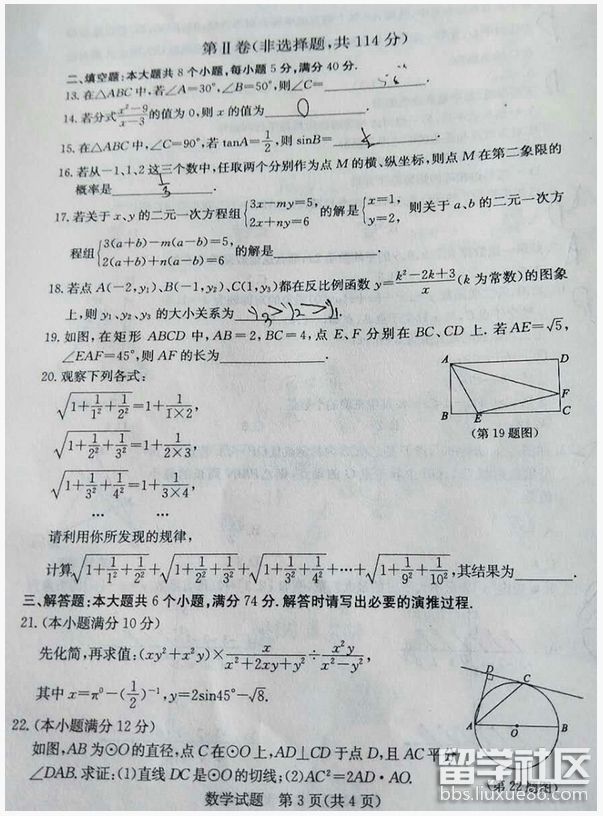 第Ⅱ卷(非选择题,共114分)
二、填空题:本大题共8个小题,每小题5分,满分40分.
13.在△ABC中,若∠A=30°,∠B=50°,则∠C=
14.若分式\frac{x²-9}{x-3}的值为0,则x的值为 0 .
15.在△ABC中,∠C=90°,若tanA=\frac{1}{2},则sinB=
16.若从-1,1,2这三个数中,任取两个分别作为点M的横、纵坐标,则点M在第二象限的
概率是 \frac{1}{3} .
17.若关于x、y的二元一次方程组{3x-my=5, 2x+ny=6 的解是{x=1, y=2, 则关于a、b的二元一次方
程组{3(a+b)-m(a-b)=5, 2(a+b)+n(a-b)=6 的解是 .
18.若点A(-2,y₁)、B(-1,y₂)、C(1,y₃)都在反比例函数y=\frac{k²-2k+3}{x}(k为常数)的图象
上,则y₁、y₂、y₃的大小关系为 y₃>y₂>y₁.
19.如图,在矩形ABCD中,AB=2,BC=4,点E、F分别在BC、CD上.若AE=√5,
∠EAF=45°,则AF的长为 .
A D
F
B E C
(第19题图)
20.观察下列各式:
√(1+\frac{1}{1²}+\frac{1}{2²})=1+\frac{1}{1×2},
√(1+\frac{1}{2²}+\frac{1}{3²})=1+\frac{1}{2×3},
√(1+\frac{1}{3²}+\frac{1}{4²})=1+\frac{1}{3×4},
……
请利用你所发现的规律,
计算√(1+\frac{1}{1²}+\frac{1}{2²})+√(1+\frac{1}{2²}+\frac{1}{3²})+√(1+\frac{1}{3²}+\frac{1}{4²})+…+√(1+\frac{1}{9²}+\frac{1}{10²}),其结果为 .
三、解答题:本大题共6个小题,满分74分.解答时请写出必要的演推过程.
21.(本小题满分10分)
先化简,再求值:(xy²+x²y)×\frac{x}{x²+2xy+y²}÷\frac{x²y}{x²-y²},
其中x=π⁰-(\frac{1}{2})⁻¹,y=2sin45°-√8.
22.(本小题满分12分)
如图,AB为⊙O的直径,点C在⊙O上,AD⊥CD于点D,且AC平分
∠DAB.求证:(1)直线DC是⊙O的切线;(2)AC²=2AD·AO.
D C
A O B
(第22题图)
数学试题 第3页(共4页)
留学社区
bbs.liuxue86.com